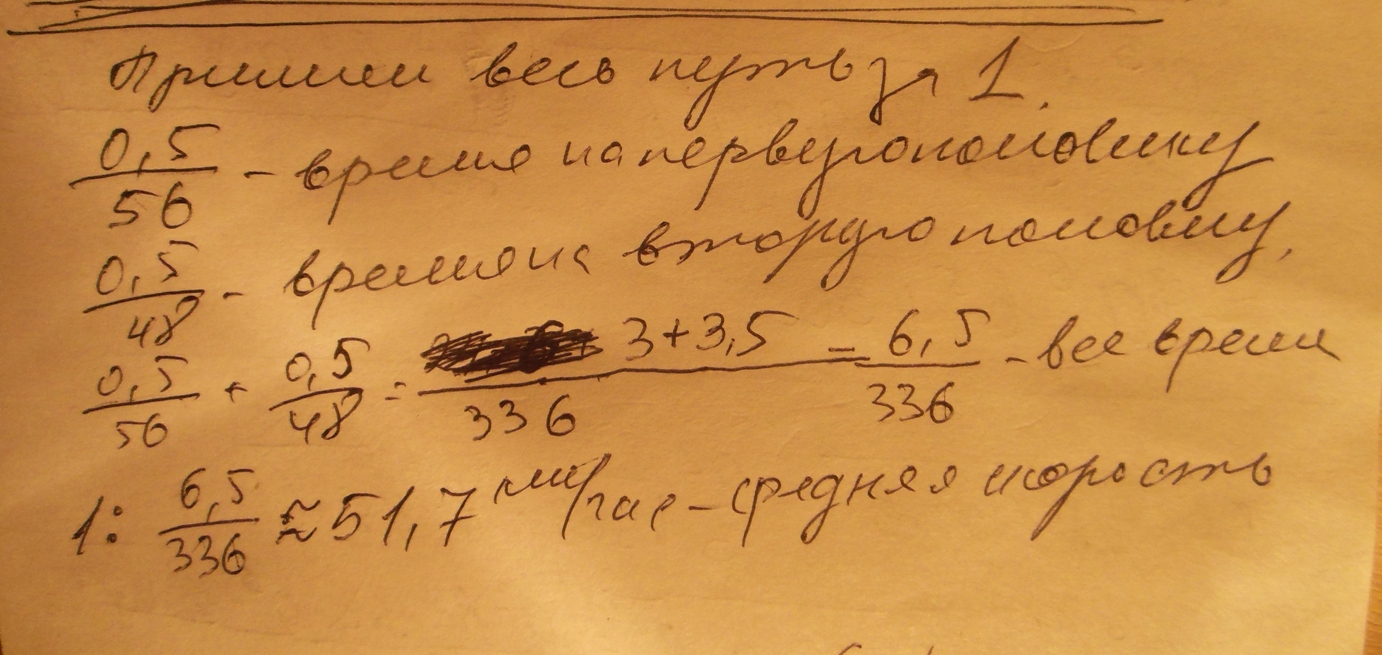 Примем весь путь за 1.
0,5/56 - время на первую половину
0,5/48 - время на вторую половину,
0,5/56 + 0,5/48 = 3+3,5/336 = 6,5/336 - все время
1: 6,5/336 ≈ 51,7 км/час - средняя скорость